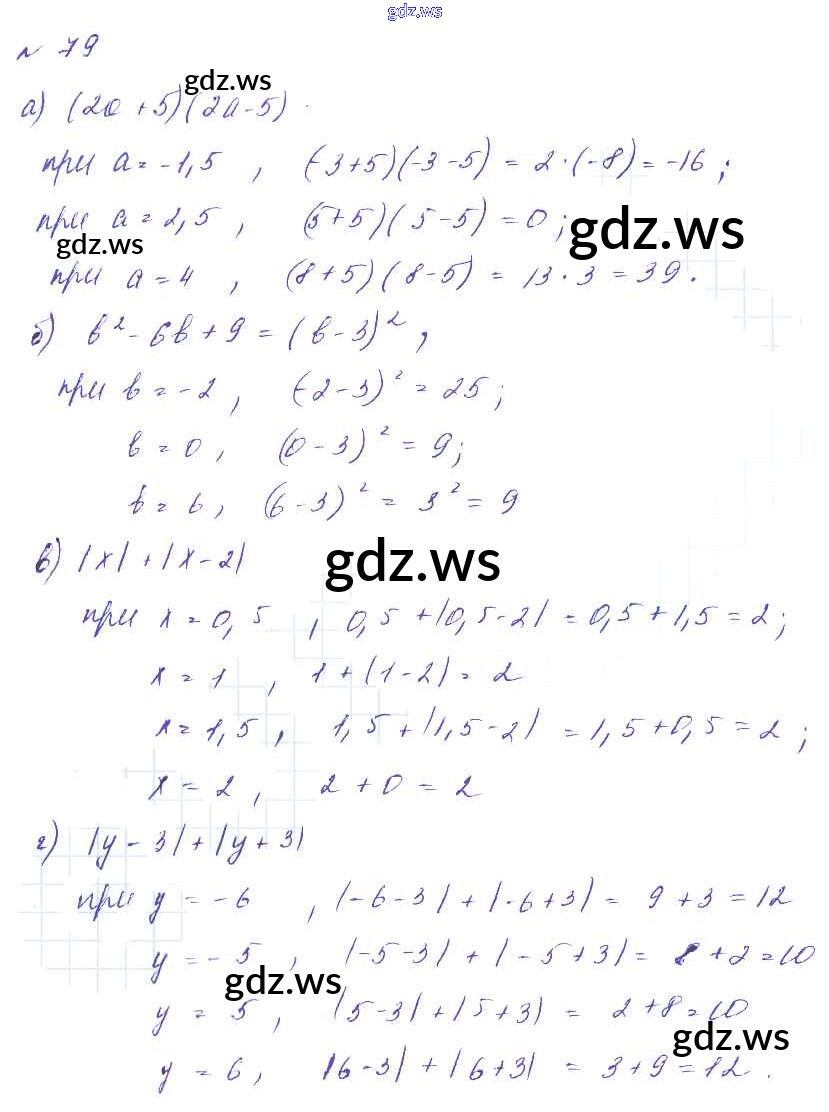 gdz.ws
№ 79
gdz.ws
а) (2a+5)(2a-5)
при a=-1,5 , (-3+5)(-3-5) = 2·(-8) = -16 ;
при a=2,5 , (5+5)(5-5) = 0 ;
gdz.ws
gdz.ws
при a=4 , (8+5)(8-5) = 13·3 = 39.
б) b²-6b+9 = (b-3)² ,
при b=-2 , (-2-3)² = 25 ;
b=0 , (0-3)² = 9;
b=6 , (6-3)² = 3² = 9
в) |x|+|x-2|
gdz.ws
при x=0,5 , 0,5+|0,5-2| = 0,5+1,5 = 2 ;
x=1 , 1+(1-2) = 2
x=1,5 , 1,5+|1,5-2| = 1,5+0,5 = 2 ;
x=2 , 2+0 = 2
г) |y-3|+|y+3|
при y=-6 , |-6-3|+|-6+3| = 9+3 = 12
y=-5 , |-5-3|+|-5+3| = 8+2 = 10
gdz.ws
y=5 , |5-3|+|5+3| = 2+8 = 10
gdz.ws
y=6 , |6-3|+|6+3| = 3+9 = 12 .